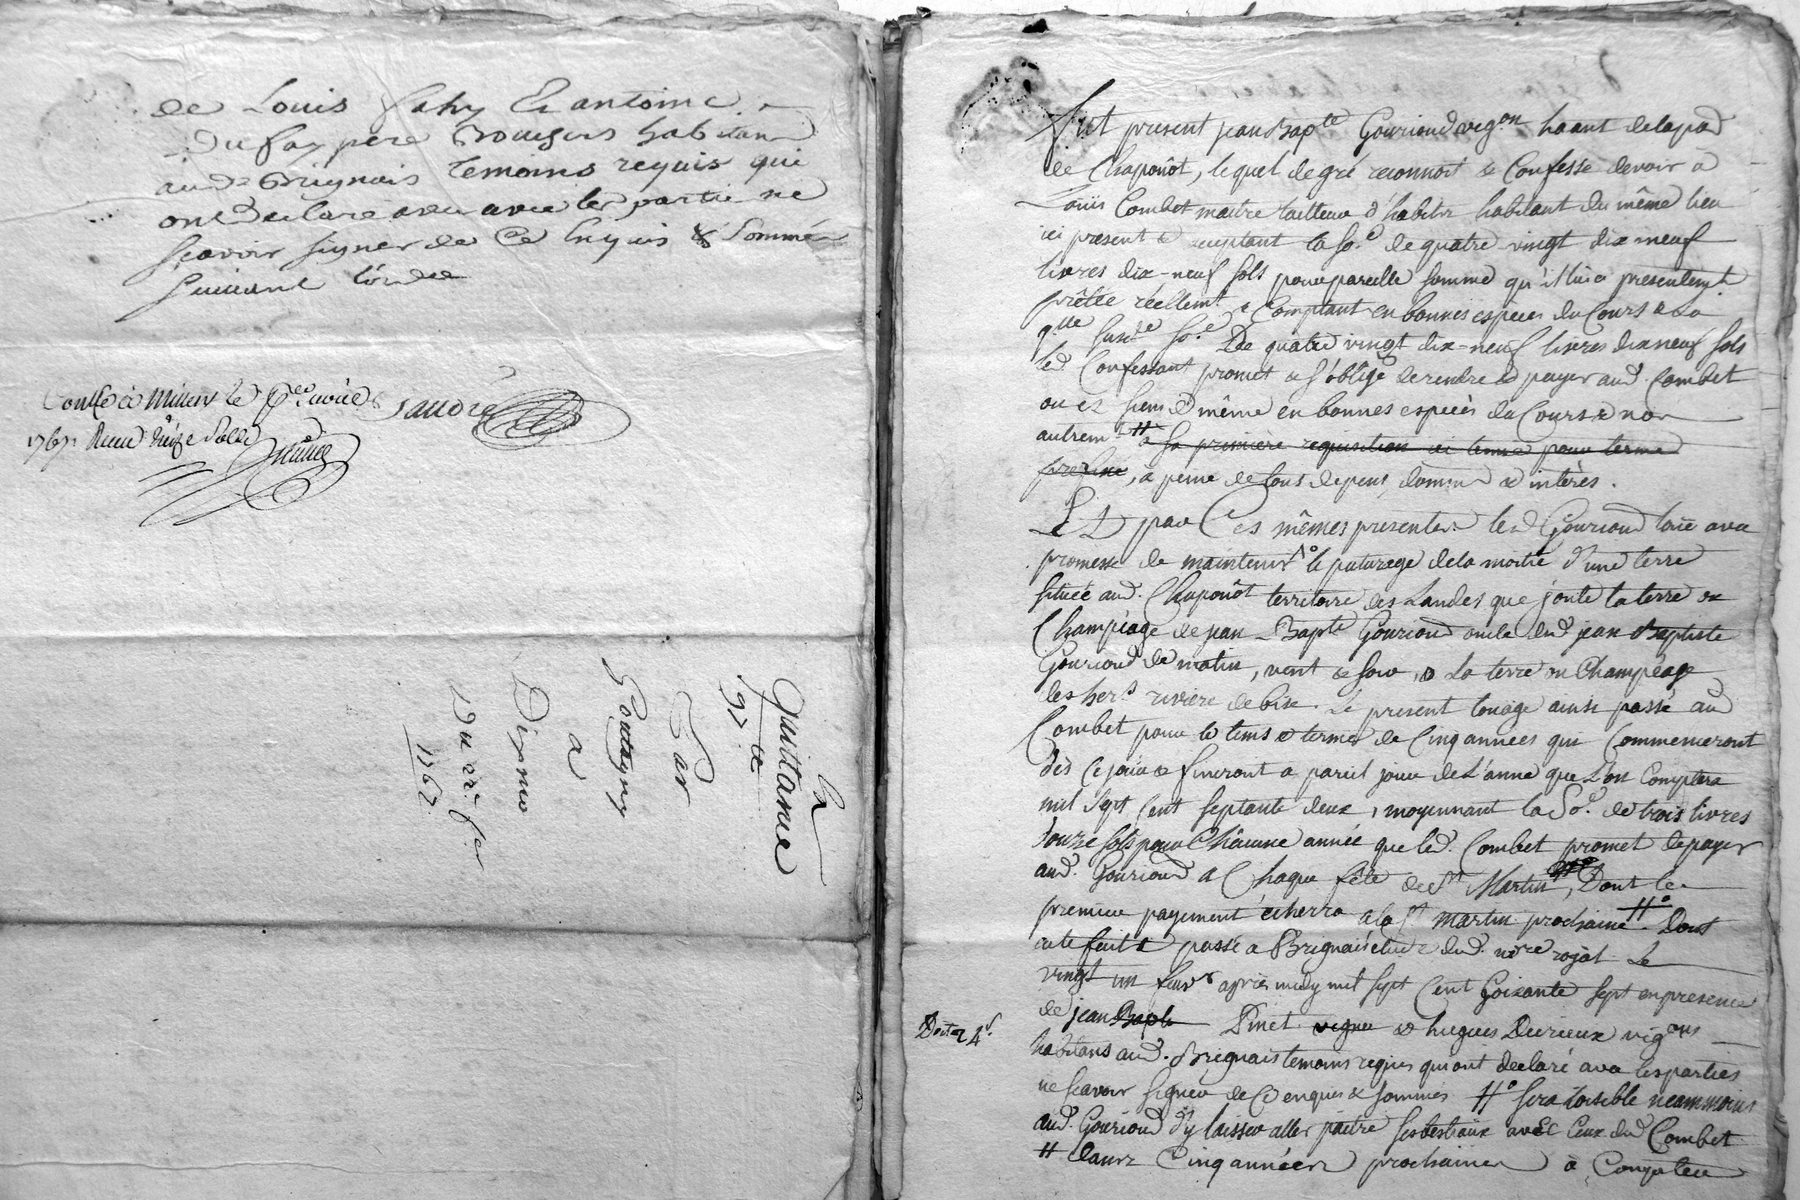 de Louis Fahy Et antoine
Dufay pere Brouesers habitans
aud. Brignais temoins requis qui
ont declaré avec les partie ne
sçavoir signer de ce Enquis & sommés
suivant l'ordce
Contlé à Millery le
1767. Reçu treize sols
Sandré
Quittance
97 tt
Par
a
Du 22e fer
1767
Fut present jean Bapte Gouriond vigon haant de la pad
de Chaponôt, lequel de gré reconnoit & Confesse devoir à
Louis Combet maitre tailleur d'habits habitant du même lieu
ici present & acceptant la Soe de quatre vingt dix neuf
livres dix-neuf sols pour pareille somme qu'il lui a presentemt
prêtée réellemt & Comptant en bonnes espèces du Cours & La
qlle susde So.e De quatre vingt dix-neuf livres dix neuf sols
led Confessant promet & s'oblige de rendre & payer aud. Combet
ou es siens de même en bonnes espèces du Cours & non
autremt # à Sa première requisition ici tenue pour terme
prefixe, à peine de tous depens, dommd & interès.
Et par Ces mêmes presentes led Gouriond loüe avec
promesse de maintenir #o le paturege de la moitié d'une terre
située aud. Chaponôt territoire des Landes que joute la terre ou
Champéage de jean Bapte Gouriond oncle dud jean Baptiste
Gouriond de matin, vent & soir, & La terre ou Champéage
des hers riviere de bise. Le present louage ainsi passé aud
Combet pour le tems & terme de Cinq années qui Commenceront
dès Ce jour & finiront a pareil jour de L'anné que L'on Comptera
mil sept Cent septante deux, moyennant la So.e de trois livres
douze sols pour Châcune année que led. Combet promet de payer
aud. Gouriond a Chaque fête de St Martin, Dont le
premier payement écherra a la St martin prochaine #o. Dont
acte fait & passé a Brignais étude dud. nore royal Le
vingt un fevr après midy mil sept Cent soixante sept en presence
de jean Bapte Pinet vigner & hugues Durieux vigons
habitans aud. Brignais temoins requis qui ont declaré avec les parties
ne sçavoir signer de Ce enquis & sommés #o sera loisible neammoins
aud. Gouriond d'y laisser aller paitre ses bestiaux avec Ceux dud Combet
# dans Cinq années prochaines à Compter